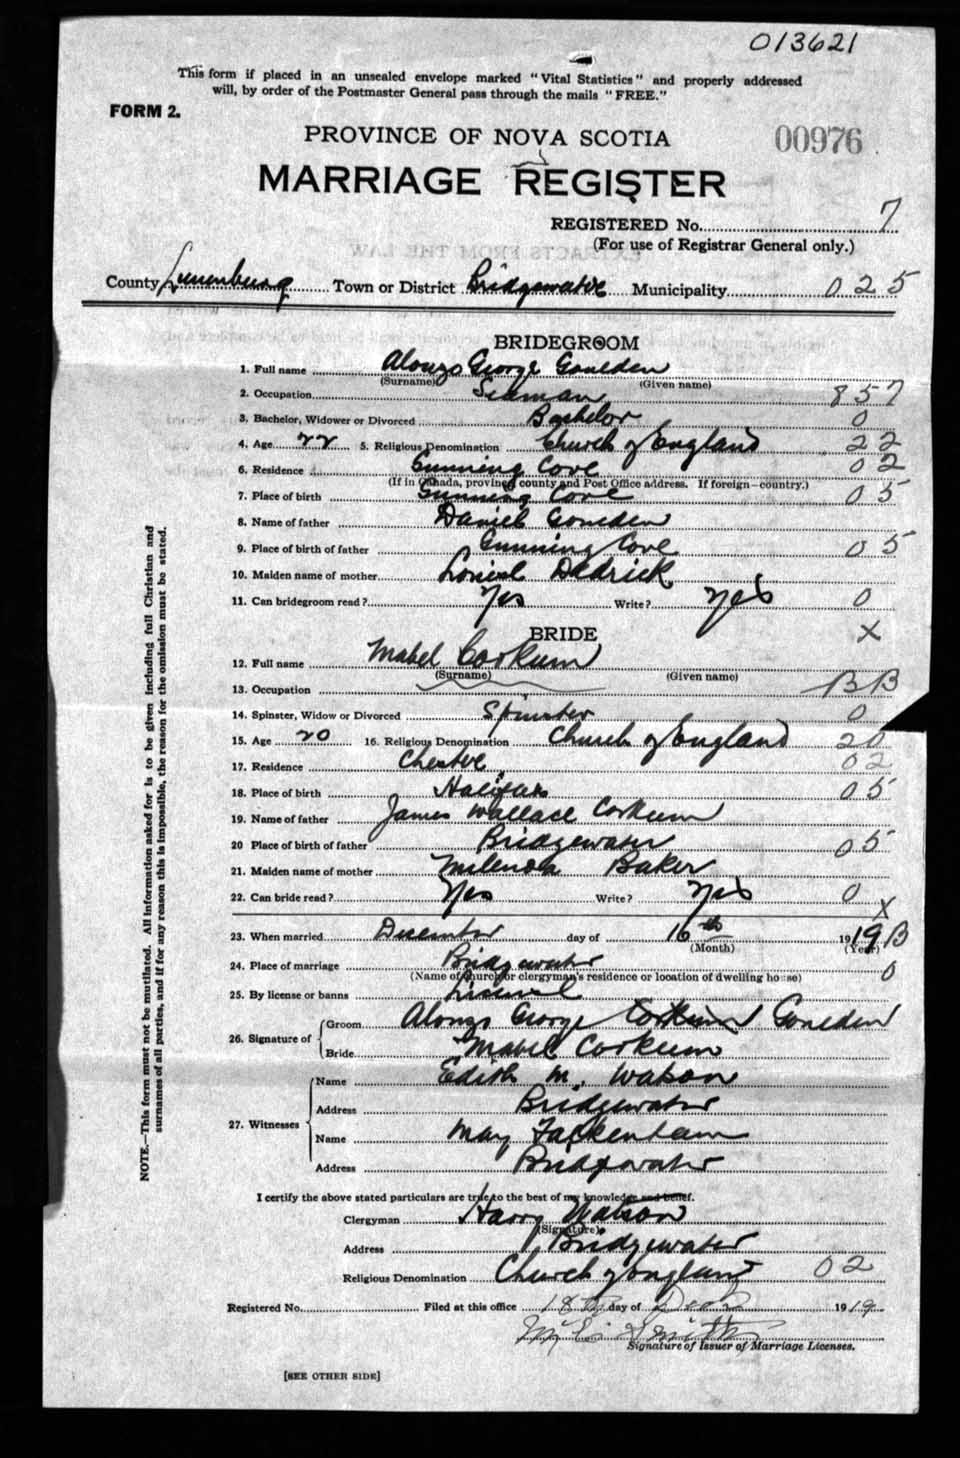 013621
This form if placed in an unsealed envelope marked "Vital Statistics" and properly addressed
will, by order of the Postmaster General pass through the mails "FREE."
FORM 2.
PROVINCE OF NOVA SCOTIA
00976
MARRIAGE REGISTER
REGISTERED No. 7
(For use of Registrar General only.)
County Lunenburg Town or District Bridgewater Municipality 025
BRIDEGROOM
1. Full name Alonzo George Goulden
(Surname) (Given name)
2. Occupation Seaman 857
3. Bachelor, Widower or Divorced Bachelor 0
4. Age 22 5. Religious Denomination Church of England 22
6. Residence Gunning Cove 02
(If in Canada, province county and Post Office address. If foreign—country.)
7. Place of birth Gunning Cove 05
8. Name of father Daniel Goulden
9. Place of birth of father Gunning Cove 05
10. Maiden name of mother Dedrick
11. Can bridegroom read? Yes Write? Yes 0
X
BRIDE
12. Full name Mabel Corkum
(Surname) (Given name)
13. Occupation BB
14. Spinster, Widow or Divorced Spinster 0
15. Age 20 16. Religious Denomination Church of England 20
17. Residence Chester 02
18. Place of birth Halifax 05
19. Name of father James Wallace Corkum
20 Place of birth of father Bridgewater 05
21. Maiden name of mother Baker
22. Can bride read? Yes Write? Yes 0
X
23. When married December day of 16th 1919 B
(Month) (Year)
24. Place of marriage Bridgewater 0
(Name of church or clergyman's residence or location of dwelling house)
25. By license or banns License
26. Signature of Groom Alonzo George Corkum Goulden
Bride Mabel Corkum
27. Witnesses Name Edith M. Watson
Address Bridgewater
Name May Fackenham
Address Bridgewater
I certify the above stated particulars are true to the best of my knowledge and belief.
Clergyman Harry Watson
(Signature)
Address Bridgewater
Religious Denomination Church of England 02
Registered No. Filed at this office 18th day of Dec 1919
Smith
Signature of Issuer of Marriage Licenses.
[SEE OTHER SIDE]
NOTE.—This form must not be mutilated. All information asked for is to be given including full Christian and
surnames of all parties, and if for any reason this is impossible, the reason for the omission must be stated.